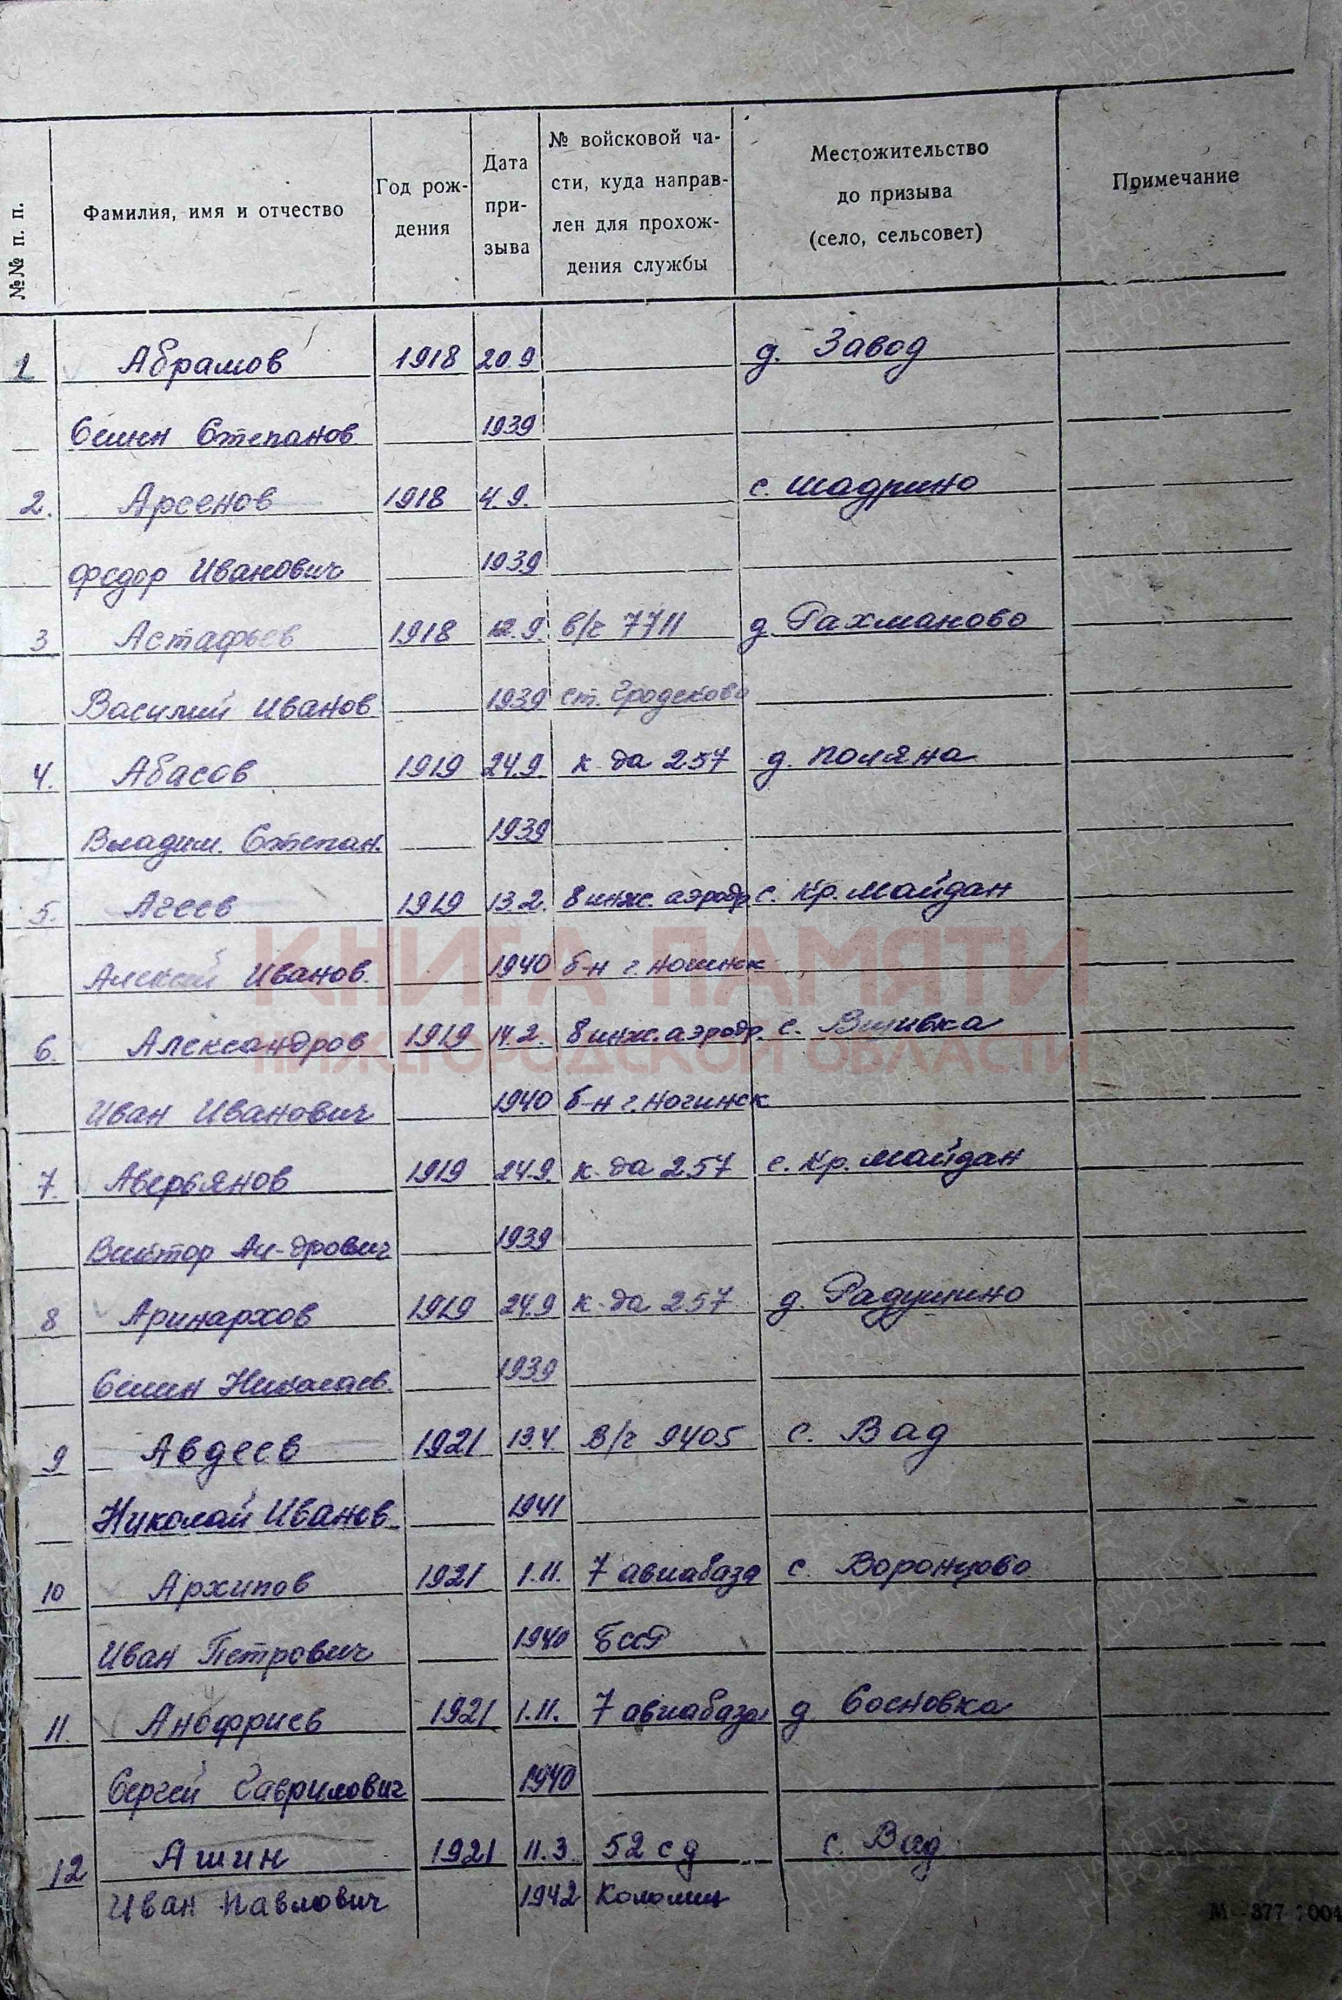 №№ п. п. Фамилия, имя и отчество Год рождения Дата призыва № войсковой части, куда направлен для прохождения службы Местожительство до призыва (село, сельсовет) Примечание
1 Абрамов 1918 20.9 д. Завод
Семен Степанов 1939
2. Арсенов 1918 4.9. с. Шадрино
Федор Иванович 1939
3 Астафьев 1918 12.9. в/ч 7711 д. Рахманово
Василий Иванов 1939 ст. Гродеково
4. Абасов 1919 24.9 к-да 257 д. Поляна
Владим. Степан. 1939
5. Агеев 1919 13.2. 8 инж. аэродр. с. Кр. Майдан
Алексей Иванов. 1940 б-н г. Ногинск
КНИГА ПАМЯТИ
6. Александров 1919 14.2. 8 инж. аэродр. с. Вшивка
НИЖЕГОРОДСКОЙ ОБЛАСТИ
Иван Иванович 1940 б-н г. Ногинск
7. Аверьянов 1919 24.9. к-да 257 с. Кр. Майдан
Виктор Ан-дрович 1939
8 Аринархов 1919 24.9 к-да 257 д. Радушино
Семен Николаев. 1939
9 Авдеев 1921 13.4. в/ч 9405 с. Вад
Николай Иванов 1941
10 Архипов 1921 1.11. 7 авиабаза с. Воронцово
Иван Петрович 1940 БССР
11. Анофриев 1921 1.11. 7 авиабаза д Сосновка
Сергей Гаврилович 1940
12 Ашин 1921 11.3. 52 сд с. Вад
Иван Павлович 1942 Коломна
М-377 7004
ПАМЯТЬ НАРОДА